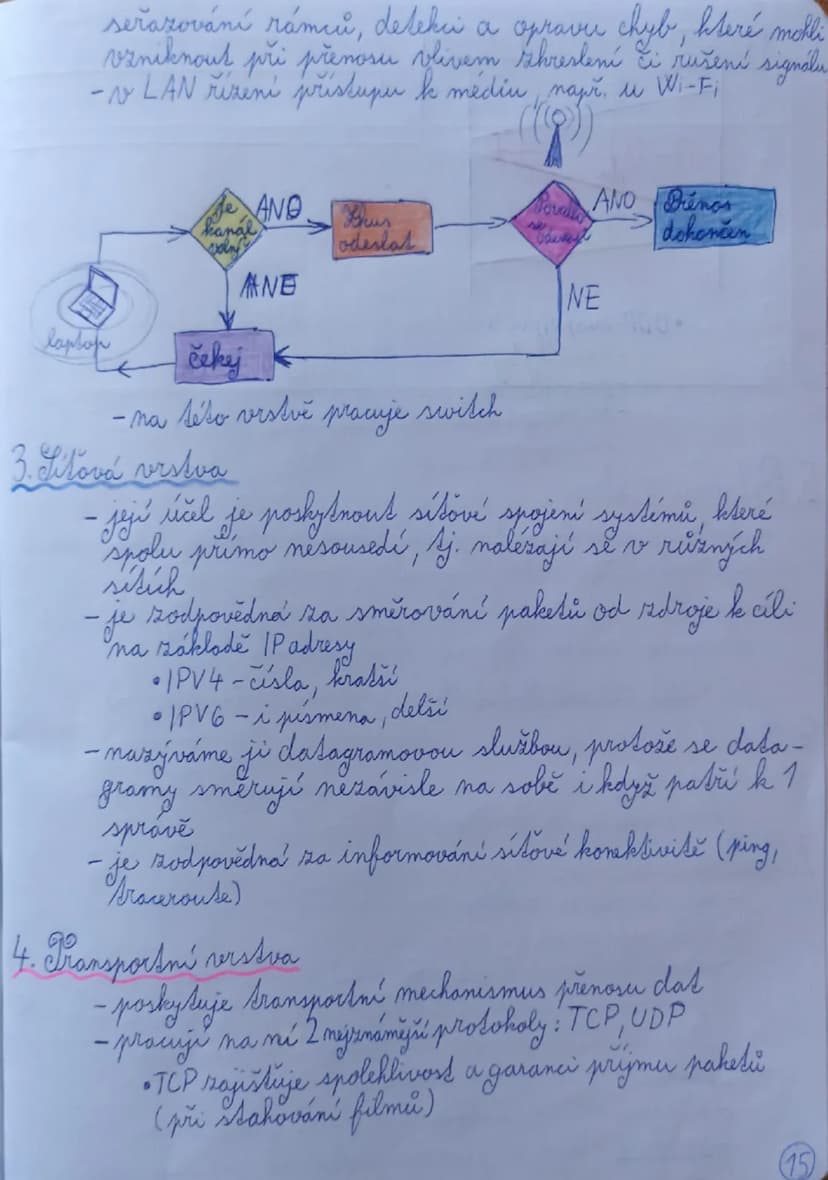 seřazování rámců, detekci a opravu chyb, které mohli
vzniknout při přenosu vlivem zkreslení či rušení signálu
- v LAN řízení přístupu k médiu, např. u Wi-Fi
Je kanál volný?
ANO
Zkus odeslat
Povedlo se odeslat?
ANO
Přenos dokončen
NE
NE
laptop
čekej
- na této vrstvě pracuje switch
3. Síťová vrstva
- její účel je poskytnout síťové spojení systémů, které
spolu přímo nesousedí, tj. nalézají se v různých
sítích
- je zodpovědná za směrování paketů od zdroje k cíli
na základě IP adresy
• IPV4 - čísla, kratší
• IPV6 - i písmena, delší
- nazýváme ji datagramovou službou, protože se data-
gramy směrují nezávisle na sobě i když patří k 1
správě
- je zodpovědná za informování síťové konektivitě (ping,
traceroute)
4. Transportní vrstva
- poskytuje transportní mechanismus přenosu dat
- pracují na ní 2 nejznámější protokoly: TCP, UDP
• TCP zajišťuje spolehlivost a garanci příjmu paketů
(při stahování filmů)
15